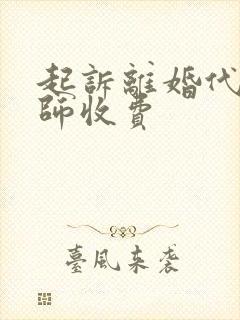 起訴離婚代
師收費
臺風來袭